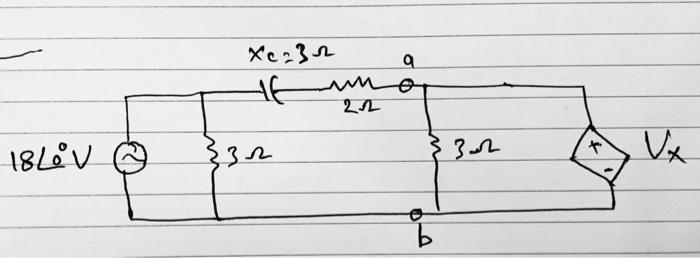 Xc=3Ω
a
2Ω
18∠0°V
3Ω
3Ω
+
-
Vx
b